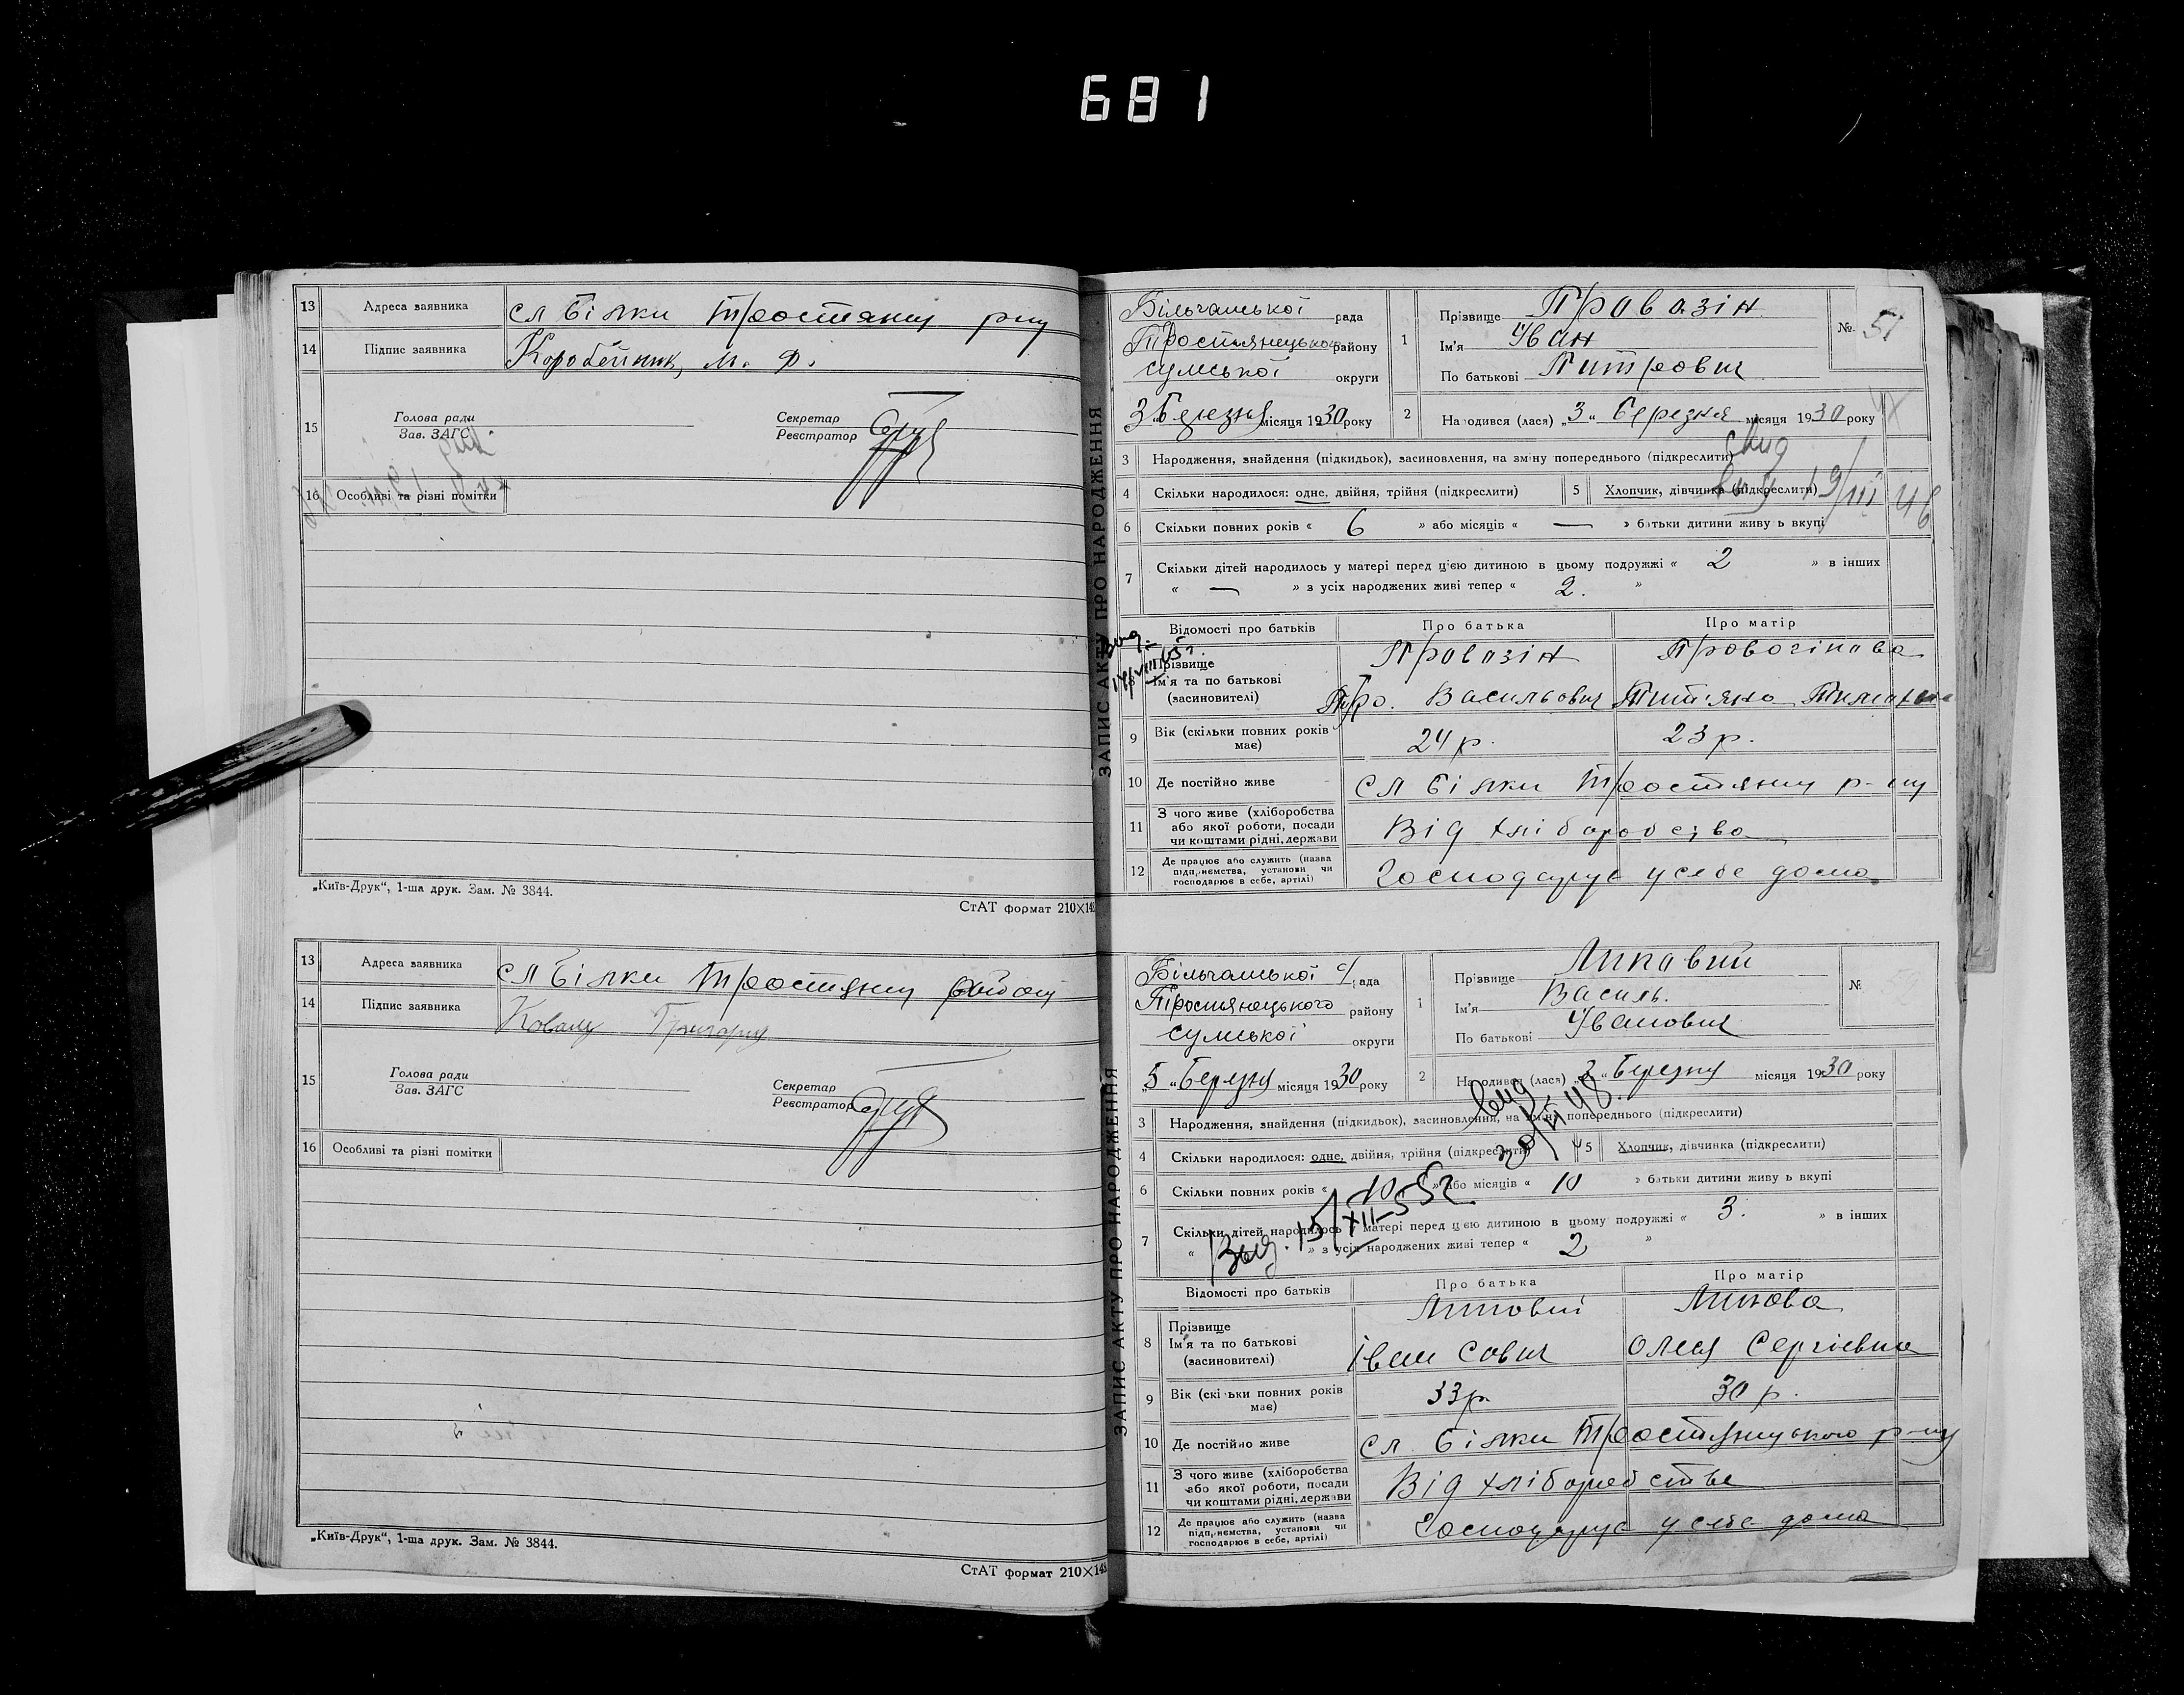 681
13 Адреса заявника сл Білки Тростянец р-ну
14 Підпис заявника Коробейник, М. Ф.
15 Голова ради Зав. ЗАГС Секретар Реєстратор
16 Особливі та різні помітки
„Київ-Друк“, 1-ша друк. Зам. № 3844.
СтАТ формат 210×148
13 Адреса заявника сл Білки
14 Підпис заявника
15 Голова ради Зав. ЗАГС Секретар Реєстратор
16 Особливі та різні помітки
„Київ-Друк“, 1-ша друк. Зам. № 3844.
СтАТ формат 210×148
ЗАПИС АКТУ ПРО НАРОДЖЕННЯ
Більчанської рада
Тростянецького району
Сумської округи
3 Березня місяця 1930 року
1 Прізвище Правазін № 51
Ім'я Иван
По батькові Питрович
2 Народився (лася) „3“ березня місяця 1930 року
3 Народження, знайдення (підкидьок), засиновлення, на зміну попереднього (підкреслити)
4 Скільки народилося: одне, двійня, трійня (підкреслити) 5 Хлопчик, дівчинка (підкреслити)
вид 19/III 46
6 Скільки повних років « 6 » або місяців « — » батьки дитини живуть вкупі
7 Скільки дітей народилось у матері перед цією дитиною в цьому подружжі « 2 » в інших
« — » з усіх народжених живі тепер « 2. »
Відомості про батьків Про батька Про матір
8 Прізвище Правазін
Ім'я та по батькові Васильович
(засновителі)
9 Вік (скільки повних років має) 24 р. 23 р.
10 Де постійно живе сл Білки р-ну
11 З чого живе (хліборобства або якої роботи, посади чи коштами рідні, держави Від хліборобства
12 Де працює або служить (назва підприємства, установи чи господарює в себе, артілі) Господарує у себе дома
ЗАПИС АКТУ ПРО НАРОДЖЕННЯ
Більчанської с/рада
Тростянецького району
Сумської округи
„5“ Березня місяця 1930 року
1 Прізвище Липавий №
Ім'я Василь.
По батькові Иванович
2 Народився (лася) „2“ Березня місяця 1930 року
3 Народження, знайдення (підкидьок), засиновлення, на зміну попереднього (підкреслити)
4 Скільки народилося: одне, двійня, трійня (підкреслити) 5 Хлопчик, дівчинка (підкреслити)
6 Скільки повних років « 10 » або місяців « 10 » батьки дитини живуть вкупі
7 Скільки дітей народилось у матері перед цією дитиною в цьому подружжі « 3. » в інших
« » з усіх народжених живі тепер « 2 »
Выд. 15/XII-52
Відомості про батьків Про батька Про матір
8 Прізвище Липовий Липова
Ім'я та по батькові Іван Савич Олеся Сергієвна
(засновителі)
9 Вік (скільки повних років має) 33 р. 30 р.
10 Де постійно живе сл. Білки Тростянецького р-ну
11 З чого живе (хліборобства або якої роботи, посади чи коштами рідні, держави Від хліборобства
12 Де працює або служить (назва підприємства, установи чи господарює в себе, артілі) Господарує у себе дома